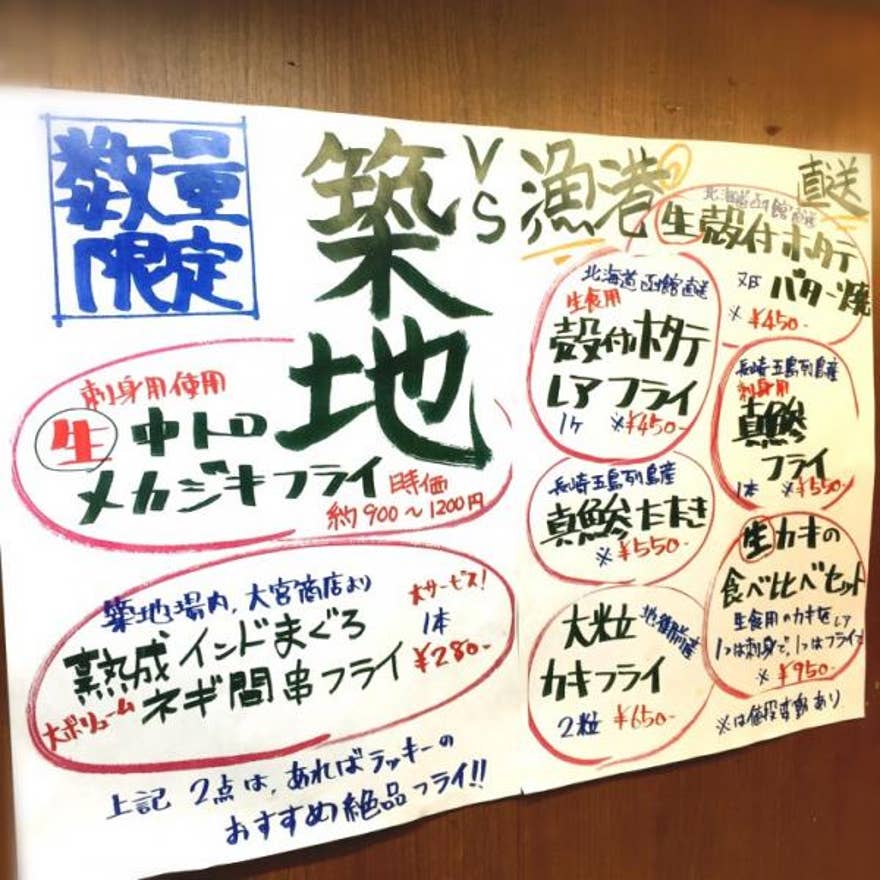 数量
限定
築地
VS
漁港
直送
刺身用使用
生 中トロ
メカジキフライ
時価
約900〜1200円
築地場内、大宮商店より
大サービス!
熟成インドまぐろ
1本
ネギ間串フライ
¥280-
大ボリューム
上記 2点は、あればラッキーの
おすすめ絶品フライ!!
北海道函館直送
生殻付ホタテ
バター焼
※¥450-
北海道函館直送
生食用
殻付ホタテ
レアフライ
1ヶ ※¥450-
長崎五島列島産
刺身用
真鯵
フライ
1本 ※¥550-
長崎五島列島産
真鯵たたき
※¥550-
生カキの
食べ比べセット
生食用のカキを
1つは刺身で、1つはフライで
※¥950-
大粒
カキフライ
2粒 ¥650-
※は値段変動あり